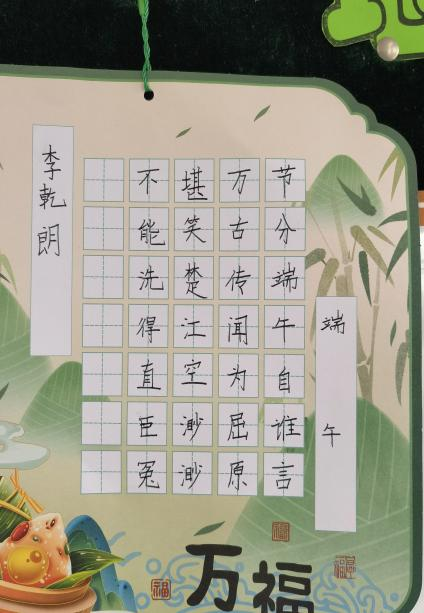 端午
节分端午自谁言
万古传闻为屈原
堪笑楚江空渺渺
不能洗得直臣冤
李乾朗
万福
福